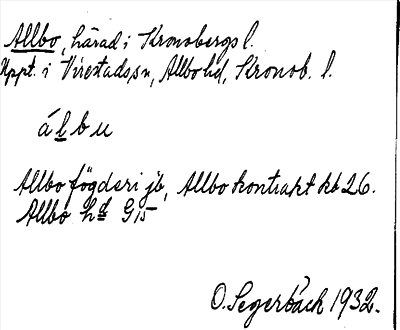 Allbo, härad i Kronobergs l.
Uppt. i Virestads sn, Allbo hd, Kronob. l.
álbu
Allbo fögderi jb, Allbo kontrakt kb 26.
Allbo hd G15
O. Segerbäck 1932.